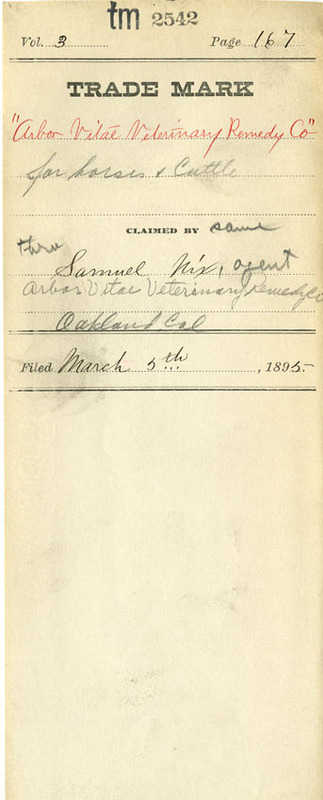 tm 2542
Vol. 3 Page 167
TRADE MARK
"Arbor Vitae Veterinary Remedy Co"
for horses & Cattle
CLAIMED BY same
thro
Samuel Nix, agent
Arbor Vitae Veterinary Remedy Co
Oakland Cal
Filed March 5th, 1895-